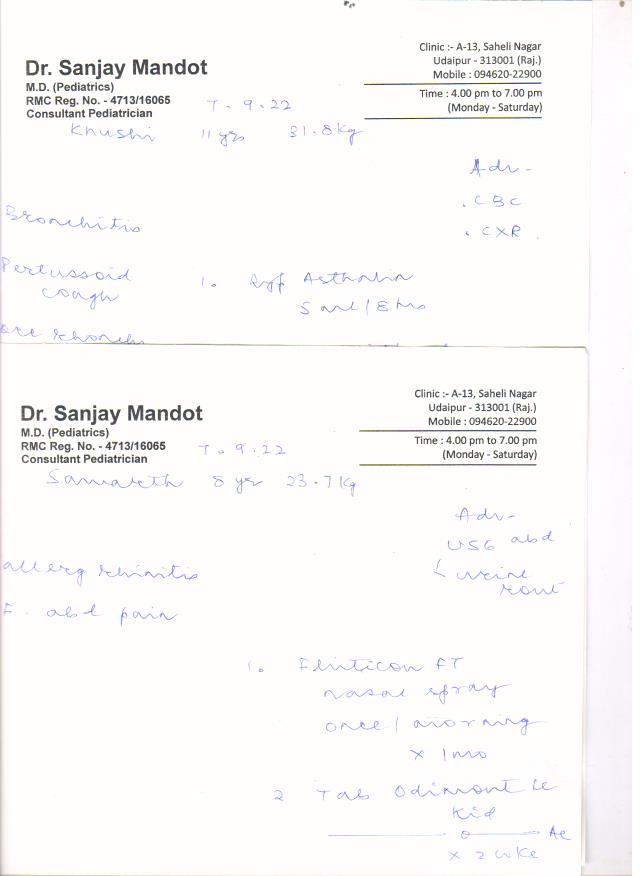 Clinic :- A-13, Saheli Nagar
Udaipur - 313001 (Raj.)
Mobile : 094620-22900
Time : 4.00 pm to 7.00 pm
(Monday - Saturday)
Dr. Sanjay Mandot
M.D. (Pediatrics)
RMC Reg. No. - 4713/16065
Consultant Pediatrician
7.9.22
Khushi 11 yrs 31.8 kg
Adv-
. CBC
. CXR
Bronchitis
Pertussoid
cough
1. Syp Asthalin
5 ml / 8 hrs
occ rhonchi
Clinic :- A-13, Saheli Nagar
Udaipur - 313001 (Raj.)
Mobile : 094620-22900
Time : 4.00 pm to 7.00 pm
(Monday - Saturday)
Dr. Sanjay Mandot
M.D. (Pediatrics)
RMC Reg. No. - 4713/16065
Consultant Pediatrician
7.9.22
Samarth 8 yr 23.7 kg
Adv-
USG abd
urine
rout
allerg rhinitis
abd pain
1. FT
nasal spray
once / morning
x 1 mo
2 Tab Odimont Lc
Kid
x 2 wke